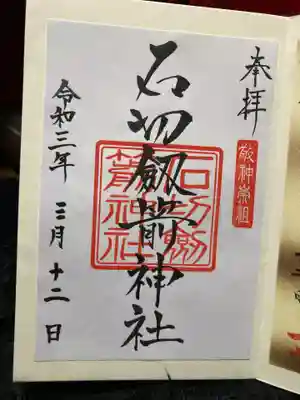 奉拝
敬神崇祖
石切劔箭神社
石切劔
箭神社
令和三年三月十二日